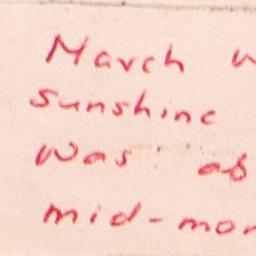 March w
sunshine
was ab
mid-mor